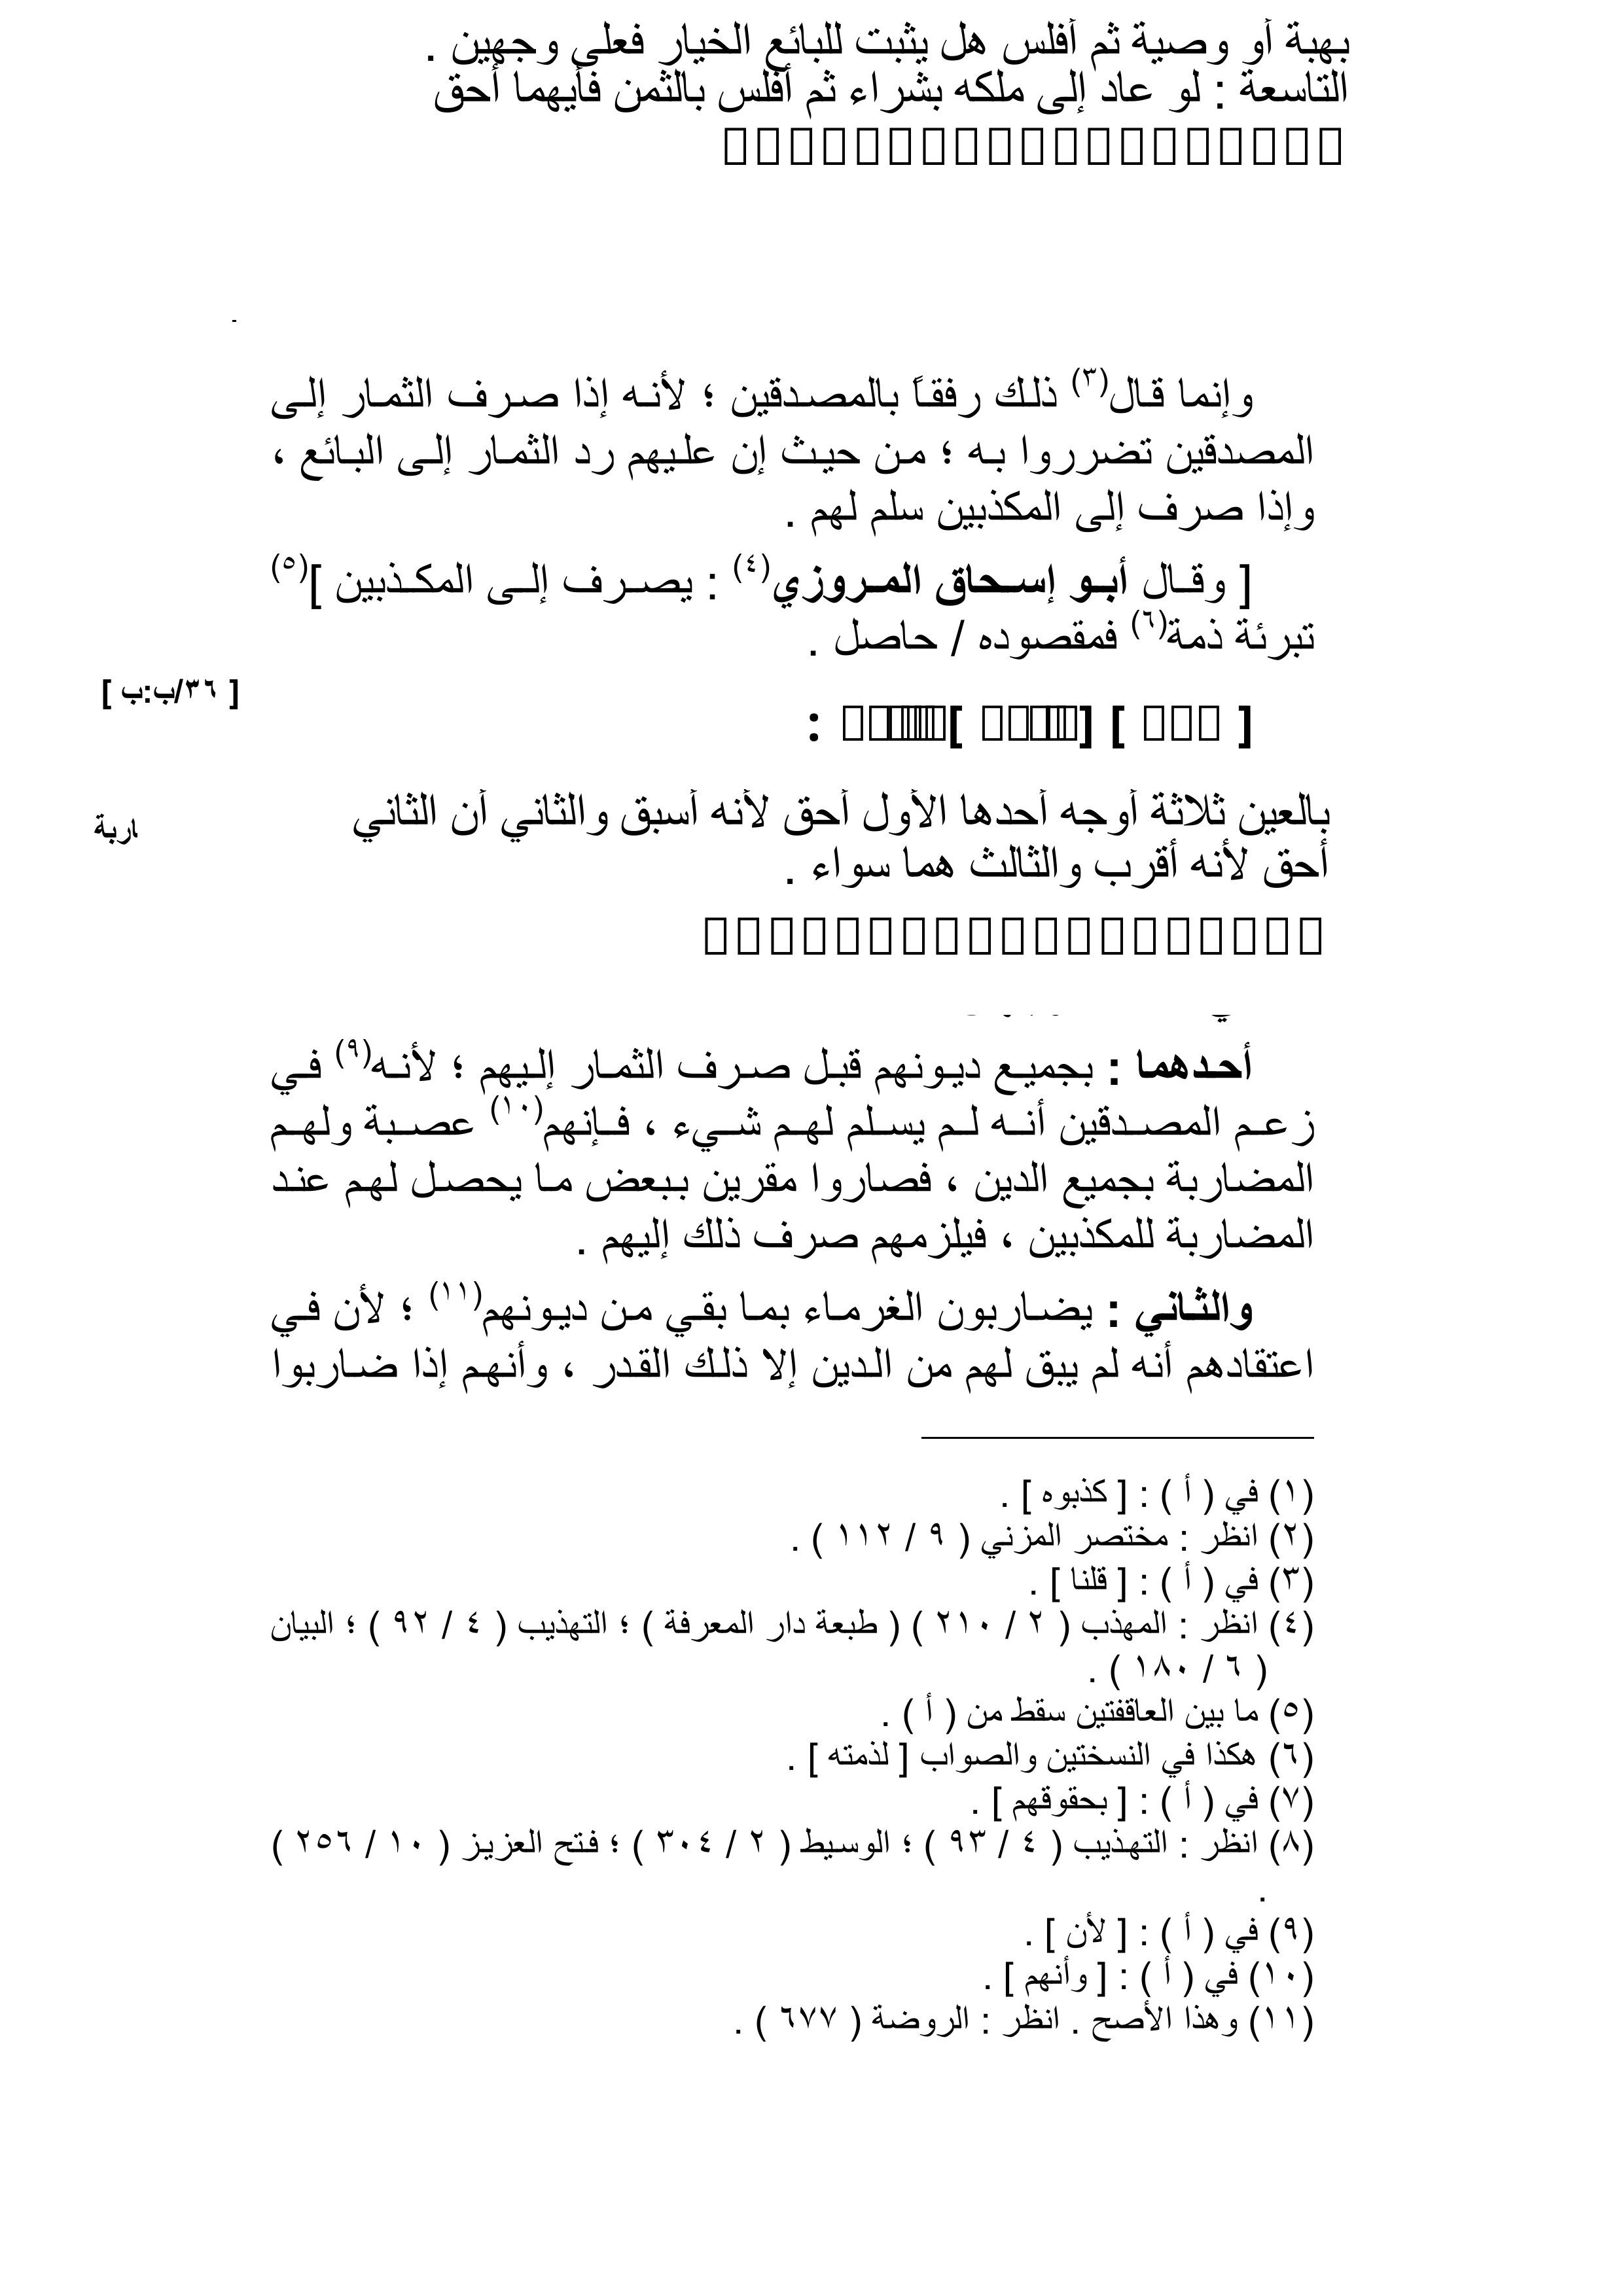 بهبة أو وصية ثم أفلس هل يثبت للبائع الخيار فعلى وجهين .
التاسعة : لو عاد إلى ملكه بشراء ثم أفلس بالثمن فأيهما أحق
وإنما قال(٣) ذلك رفقاً بالمصدقين ؛ لأنه إذا صرف الثمار إلى
المصدقين تضرروا به ؛ من حيث إن عليهم رد الثمار إلى البائع ،
وإذا صرف إلى المكذبين سلم لهم .
[ وقال أبو إسحاق المروزي(٤) : يصرف إلى المكذبين ](٥)
تبرئة ذمة(٦) فمقصوده / حاصل .
[ ٣٦/ب:ب ]
بالعين ثلاثة أوجه أحدها الأول أحق لأنه أسبق والثاني أن الثاني
اربة
أحق لأنه أقرب والثالث هما سواء .
أحدهما : بجميع ديونهم قبل صرف الثمار إليهم ؛ لأنه(٩) في
زعم المصدقين أنه لم يسلم لهم شيء ، فإنهم(١٠) عصبة ولهم
المضاربة بجميع الدين ، فصاروا مقرين ببعض ما يحصل لهم عند
المضاربة للمكذبين ، فيلزمهم صرف ذلك إليهم .
والثاني : يضاربون الغرماء بما بقي من ديونهم(١١) ؛ لأن في
اعتقادهم أنه لم يبق لهم من الدين إلا ذلك القدر ، وأنهم إذا ضاربوا
(١) في ( أ ) : [ كذبوه ] .
(٢) انظر : مختصر المزني ( ٩ / ١١٢ ) .
(٣) في ( أ ) : [ قلنا ] .
(٤) انظر : المهذب ( ٢ / ٢١٠ ) ( طبعة دار المعرفة ) ؛ التهذيب ( ٤ / ٩٢ ) ؛ البيان
( ٦ / ١٨٠ ) .
(٥) ما بين العاقفتين سقط من ( أ ) .
(٦) هكذا في النسختين والصواب [ لذمته ] .
(٧) في ( أ ) : [ بحقوقهم ] .
(٨) انظر : التهذيب ( ٤ / ٩٣ ) ؛ الوسيط ( ٢ / ٣٠٤ ) ؛ فتح العزيز ( ١٠ / ٢٥٦ )
.
(٩) في ( أ ) : [ لأن ] .
(١٠) في ( أ ) : [ وأنهم ] .
(١١) وهذا الأصح . انظر : الروضة ( ٦٧٧ ) .